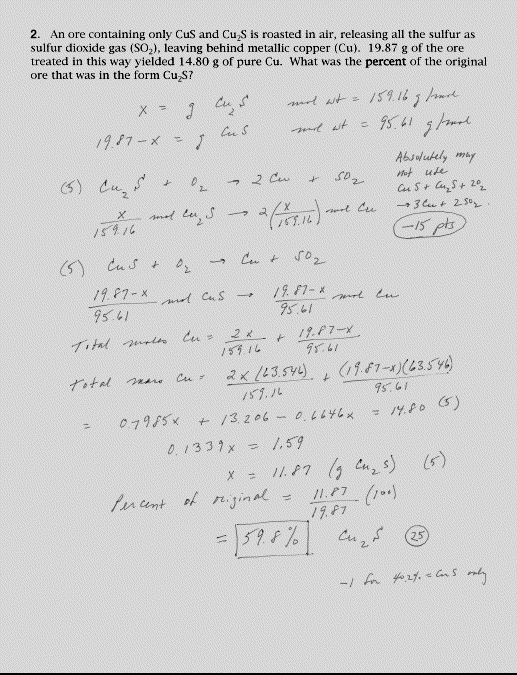 2. An ore containing only CuS and Cu₂S is roasted in air, releasing all the sulfur as
sulfur dioxide gas (SO₂), leaving behind metallic copper (Cu). 19.87 g of the ore
treated in this way yielded 14.80 g of pure Cu. What was the percent of the original
ore that was in the form Cu₂S?
x = g Cu₂S mol wt = 159.16 g/mol
19.87-x = g CuS mol wt = 95.61 g/mol
Absolutely may
not use
CuS + Cu₂S + 2O₂
→ 3Cu + 2SO₂.
-15 pts
(5) Cu₂S + O₂ → 2 Cu + SO₂
x/159.16 mol Cu₂S → 2(x/159.16) mol Cu
(5) CuS + O₂ → Cu + SO₂
19.87-x/95.61 mol CuS → 19.87-x/95.61 mol Cu
Total moles Cu = 2x/159.16 + 19.87-x/95.61
Total mass Cu = 2x(63.546)/159.16 + (19.87-x)(63.546)/95.61
= 0.7985x + 13.206 - 0.6646x = 14.80 (5)
0.1339x = 1.59
x = 11.87 (g Cu₂S) (5)
Percent of original = 11.87/19.87 (100)
= 59.8% Cu₂S (25)
-1 for 40.2% = CuS only